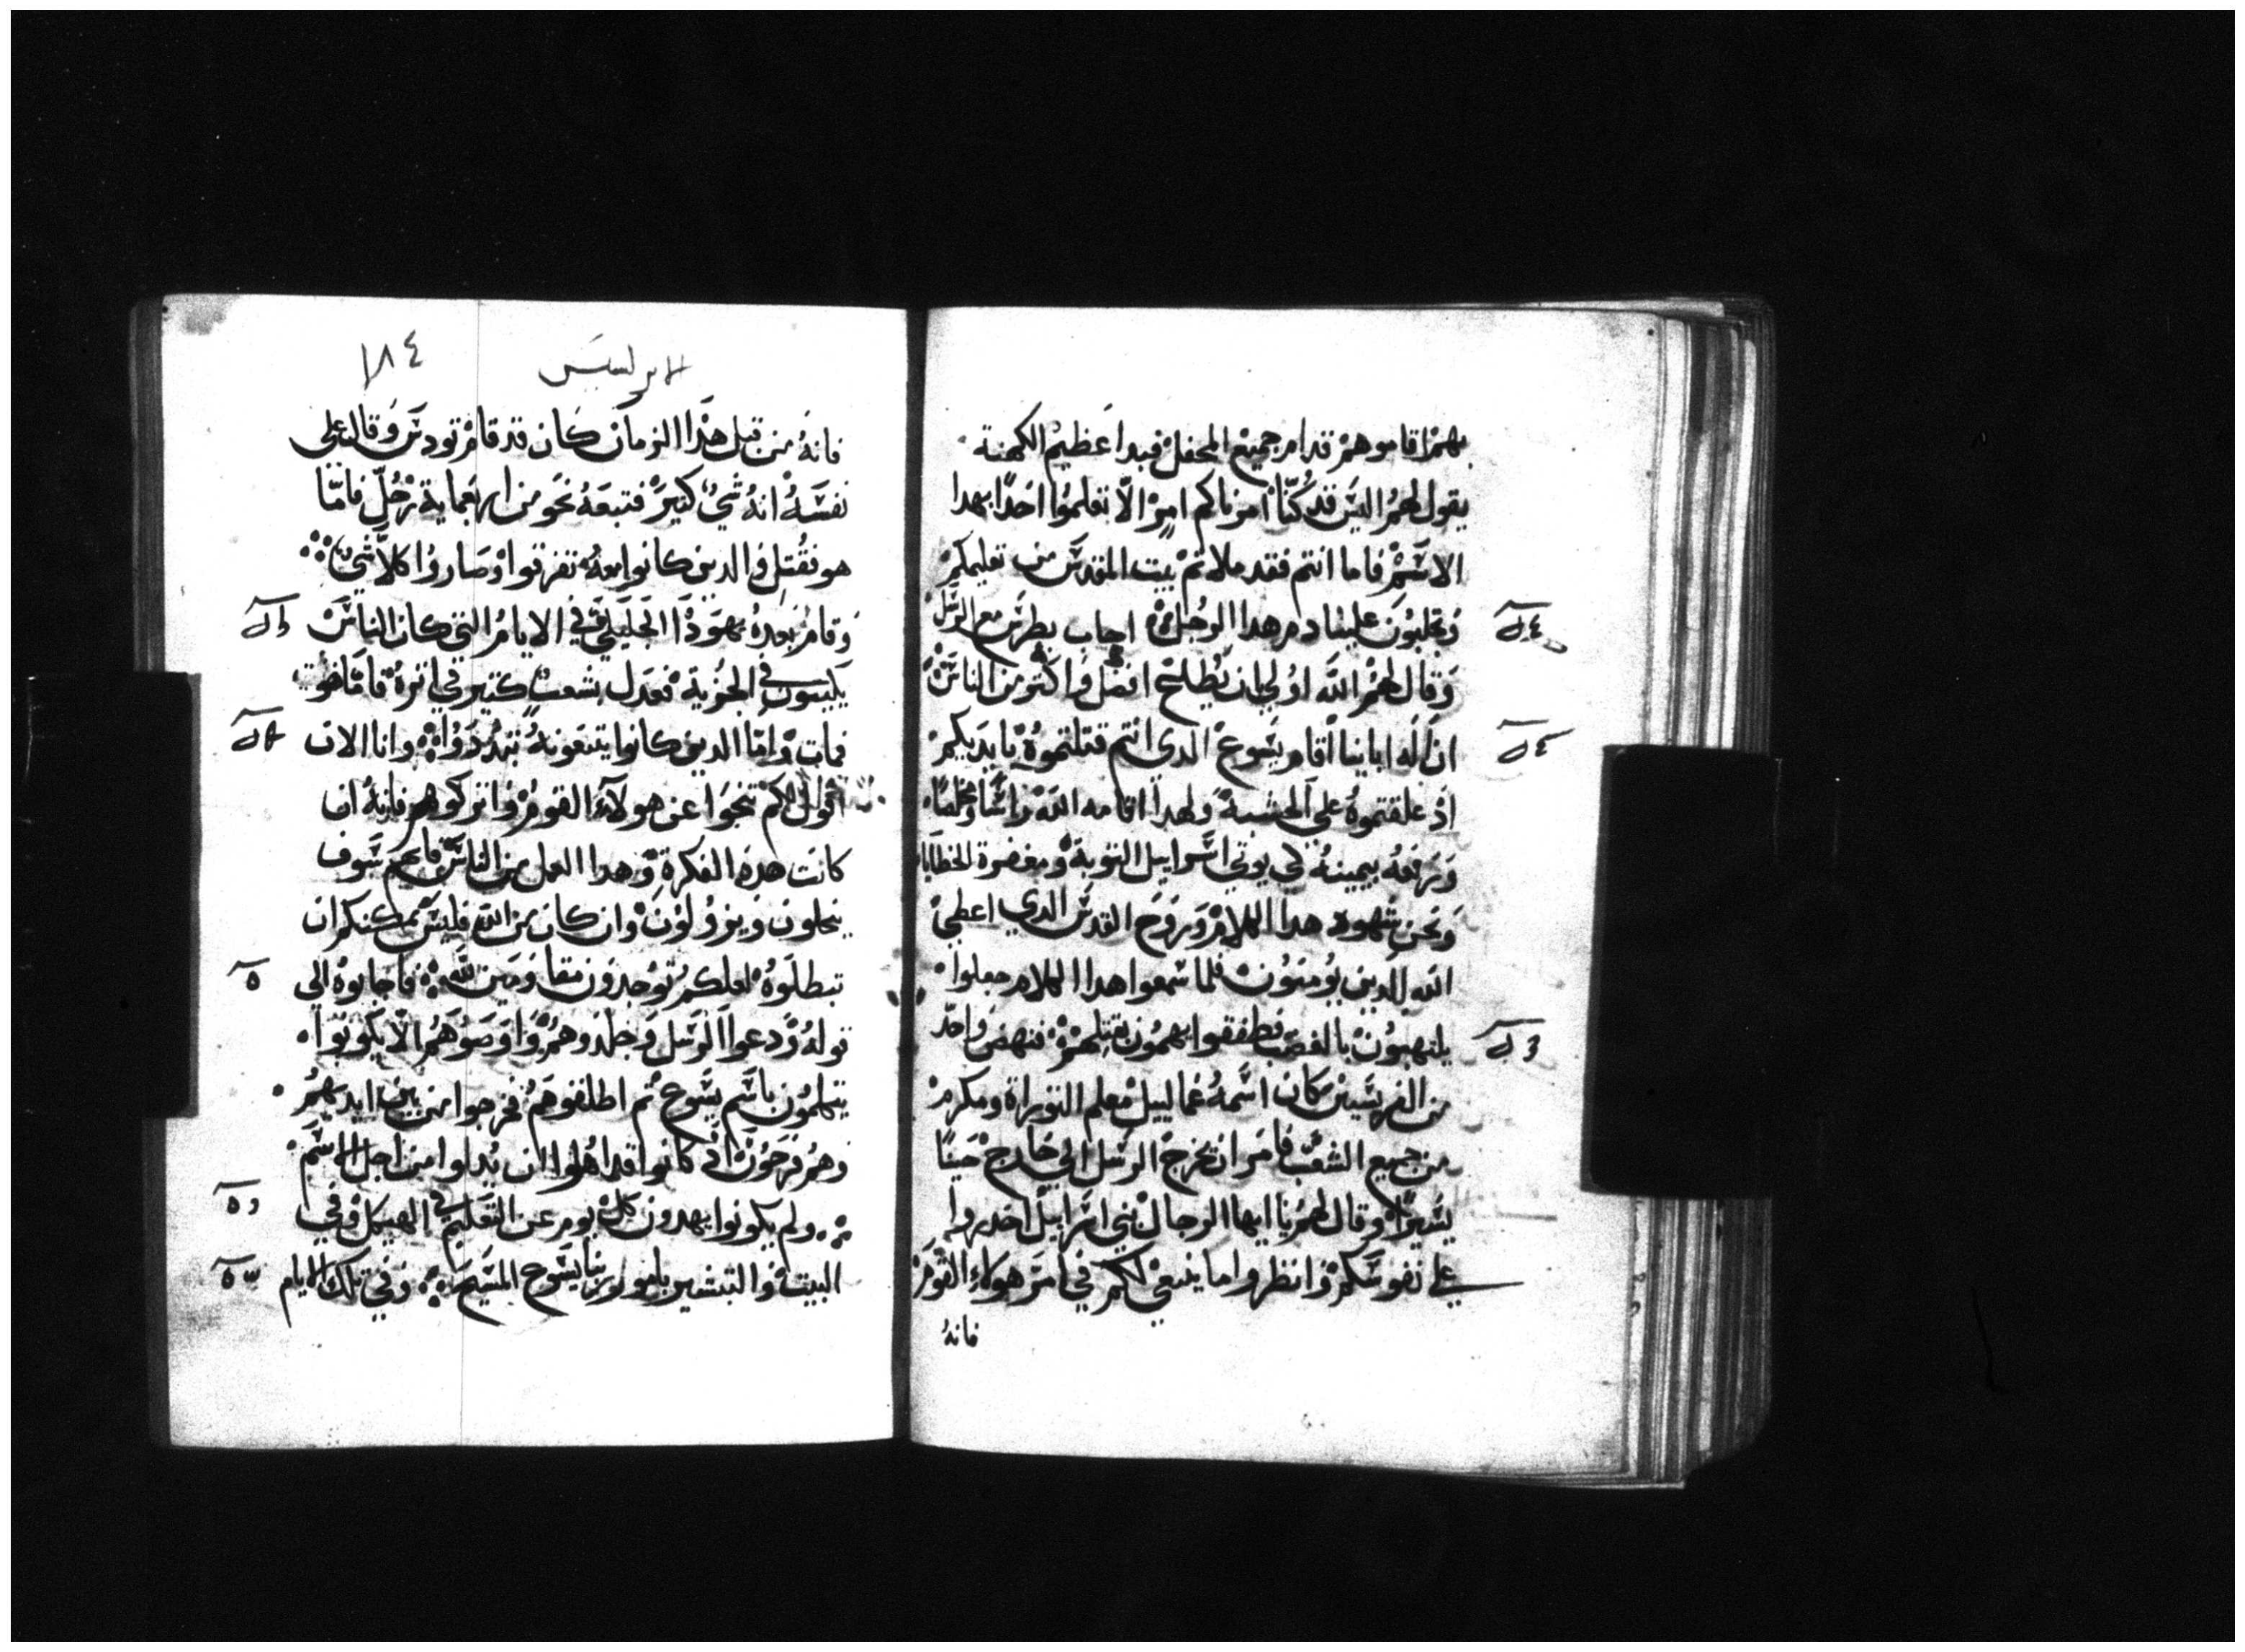 بهم اقاموهم قدام جميع المحفل فبدا عظيم الكهنة
يقول لهم اليس قد كنا امرناكم امرا الا تعلموا احدا بهدا
الاسم فاما انتم فقد ملاتم بيت المقدس من تعليمكم
وتجلبون علينا دم هدا الرجل اجاب بطرس مع الرسل
وقال لهم الله اولي ان يطاع افضل واكتر من الناس
ان اله اباينا اقام يسوع الدي انتم قتلتموه بايديكم
اذ علقتموه علي الخشبة ولهدا اقامه الله راسا ومخلصا
ورفعه بيمينه كي يوتي اسراييل التوبة ومغفرة الخطايا
ونحن شهود هدا الكلام وروح القدس الدي اعطي
الله للدين يومنون فلما سمعوا هدا الكلام جعلوا
يلتهبون بالغضب فطفقوا يهمون بقتلهم فنهض واحد
من الفريسين كان اسمه غماليل معلم التوراة ومكرم
من جميع الشعب فامر ان تخرج الرسل الي خارج حينا
يسيرا وقال لهم يا ايها الرجال بني اسراييل احدروا
علي نفوسكم وانظروا ما ينبغي لكم في امر هولاء القوم
فانه
الابركسيس
١٨٤
فانه من قبل هذا الزمان كان قد قام تودس وقال علي
نفسه انه شي كبير فتبعه نحو من اربعماية رجل فاما
هو فقتل والدين كانوا معه تفرقوا وصاروا كلا شي
وقام بعده يهوذا الجليلي في الايام التي كان الناس
يكتبون في الجزية فعدل بشعب كتير في اتره فاما هو
فمات واما الدين كانوا يتبعونه تبددوا وانا الان
اقول لكم تنحوا عن هولاء القوم واتركوهم فانه ان
كانت هذه الفكرة وهدا العمل من الناس فانهم سوف
ينحلون ويزولون وان كان من الله فليس يمكنكم ان
تبطلوه لعلكم توجدون مقاومين لله فاجابوه الي
قوله ودعوا الرسل وجلدوهم واوصوهم الا يكونوا
يتكلمون باسم يسوع تم اطلقوهم فخرجوا من بين ايديهم
وهم فرحون اذ كانوا قد اهلوا ان يدلوا من اجل الاسم
ولم يكونوا يهدون كل يوم عن التعليم في الهيكل وفي
البيت والتبشير بامور ربنا يسوع المسيح وفي تلك الايام